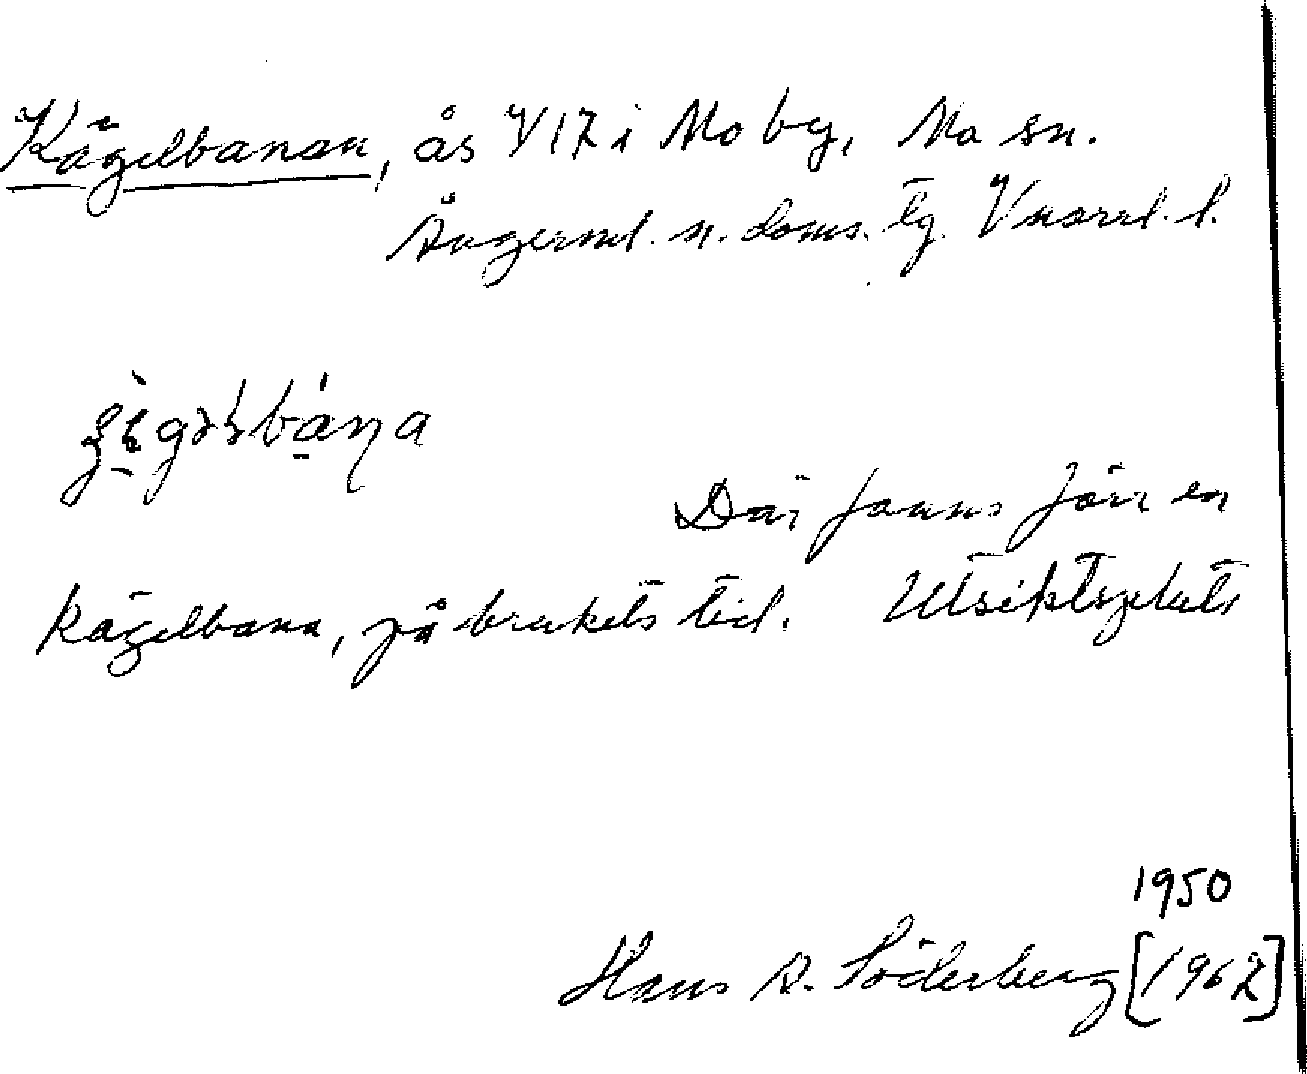 Kägelbanan, ås V17 i Mo by, Mo sn.
Ångerml. n. doms. tg. Vnorrl. l.
Där fanns förr en
kägelbana, på brukets tid. Utsiktsplats
1950
Hans A. Söderberg [1962]